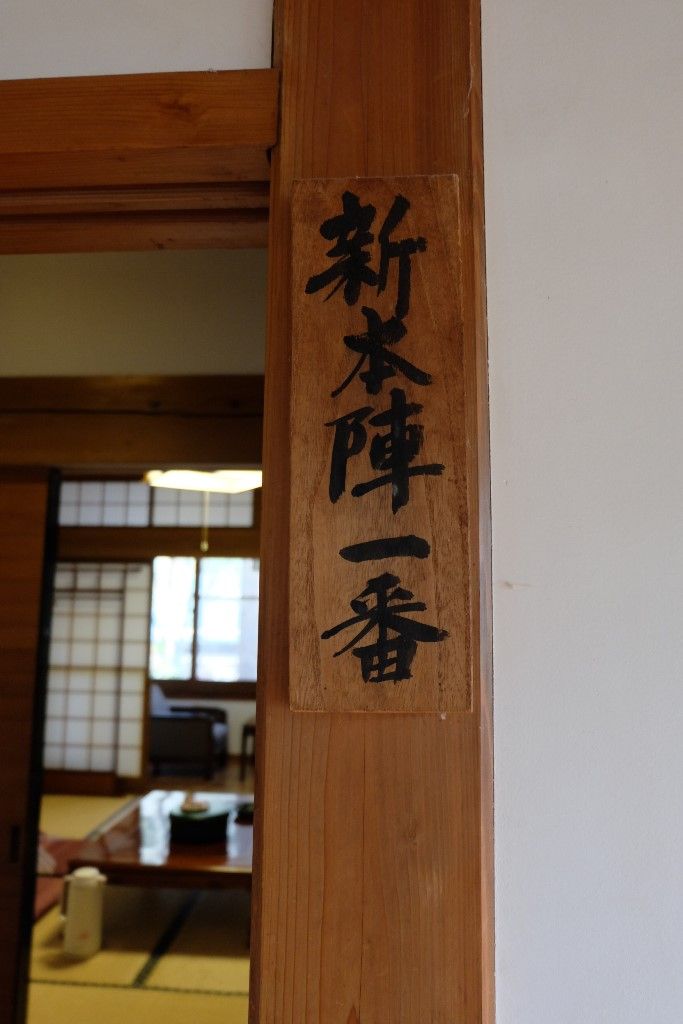 新本陣一番